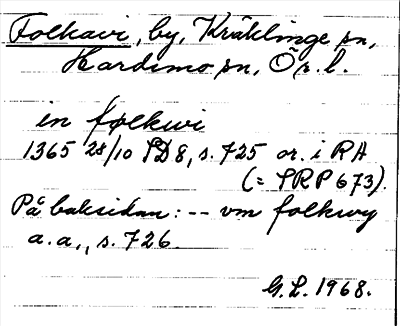 Folkavi, by, Kräklinge sn,
Hardemo sn, Ör. l.
in følkwi
1365 28/10 SD 8, s. 725 or. i RA
(= SRP 673).
På baksidan: -- vm folkwy
a. a., s. 726
G. L. 1968.